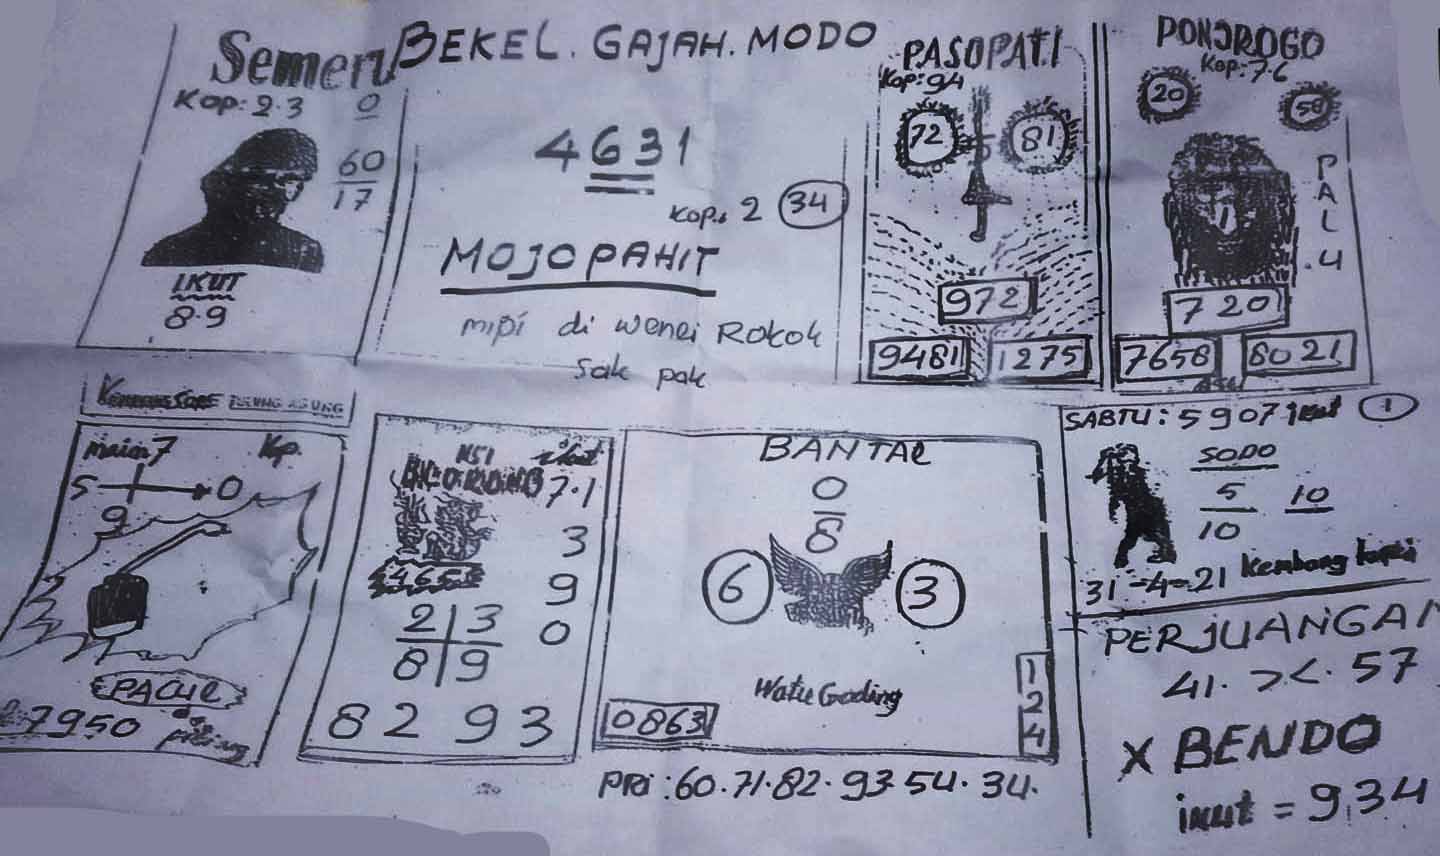 Semeru
Kop: 2.3
0
60
17
IKUT
8.9
BEKEL. GAJAH. MODO
4631
Kop. 2 34
MOJOPAHIT
mipi di wenei Rokok
sak pak
PASOPATI
Kop: 94
72
81
972
9481
1275
PONOROGO
Kop: 7.6
20
PALU
.4
720
7658
8021
main 7
Kop.
5
0
9
PACUL
7950
ikut
7.1
3
9
0
2 3
8 9
8 2 9 3
BANTAL
0
8
6
3
Watu Gading
0863
1
2
4
PRi : 60. 71. 82. 93 54. 34.
SABTU : 5907 ikut 1
SODO
5
10
10
31 - 4 - 21
PERJUANGAN
41. >< . 57
X BENDO
ikut = 934